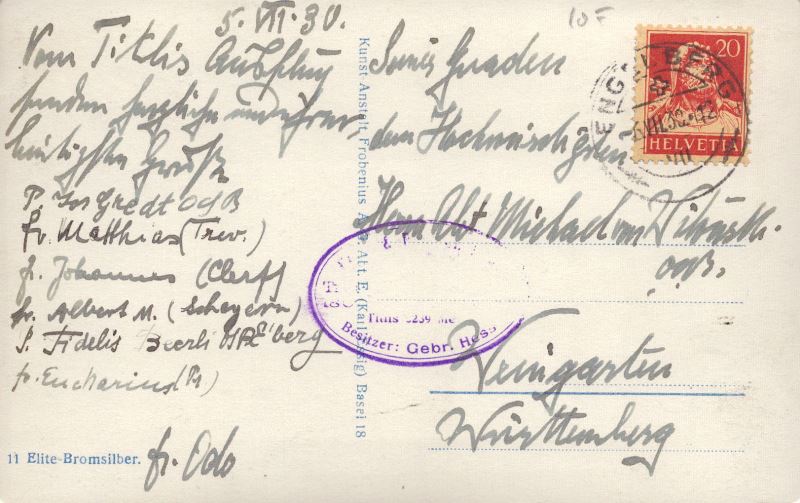 5. VII. 30.
Vom Titlis Ausflug
senden herzliche und ihrer
Grüße
P. Jos Gredt OSB
fr. Matthias (Trev.)
fr. Johannes (Clerf)
fr. Albert M. (Scheyern)
P. Fidelis Beerli OSB E'berg
fr. Eucharius (Tr)
fr. Odo
11 Elite-Bromsilber.
Kunst-Anstalt Frobenius A.G. Abt. E. (Karl Essig) Basel 18
10 F
Seine Gnaden
dem Hochwürdigsten
Herrn Abt Michael von
O.S.B.
Weingarten
Württemberg
Titlis 3239 Me
Besitzer: Gebr. Hess
20
HELVETIA
ENGELBERG
VII.30